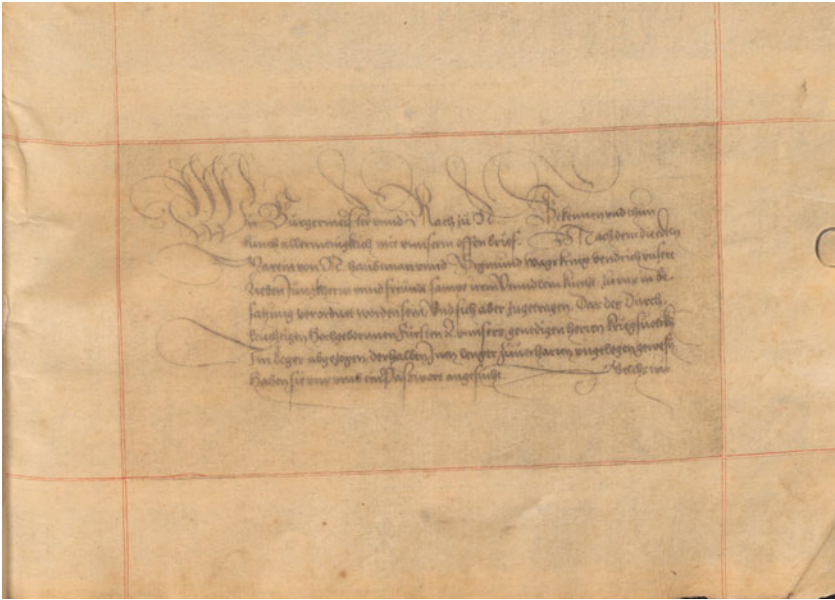 Wir Bürgermeister vnnd Rath zu N Bekennen vnd thun
kunth allermenigklich mit vnnserm offen brief. Nachdem die edlen
von N. haubtman vnnd vnsere
lieben Junckhern vnnd freunde sampt irem knecht in be
satzung verordnet worden sein Vnd sich aber zugetragen Das der Durch
leuchtigen Hochgebornnen Fürsten vnnsers genedigen herren kriegsuolckh
Im leger abgezogen derhalben lenger zuuerharren vngelegen gewesen
Haben sie vnns vmb ein Paßwort angesucht Welche wir